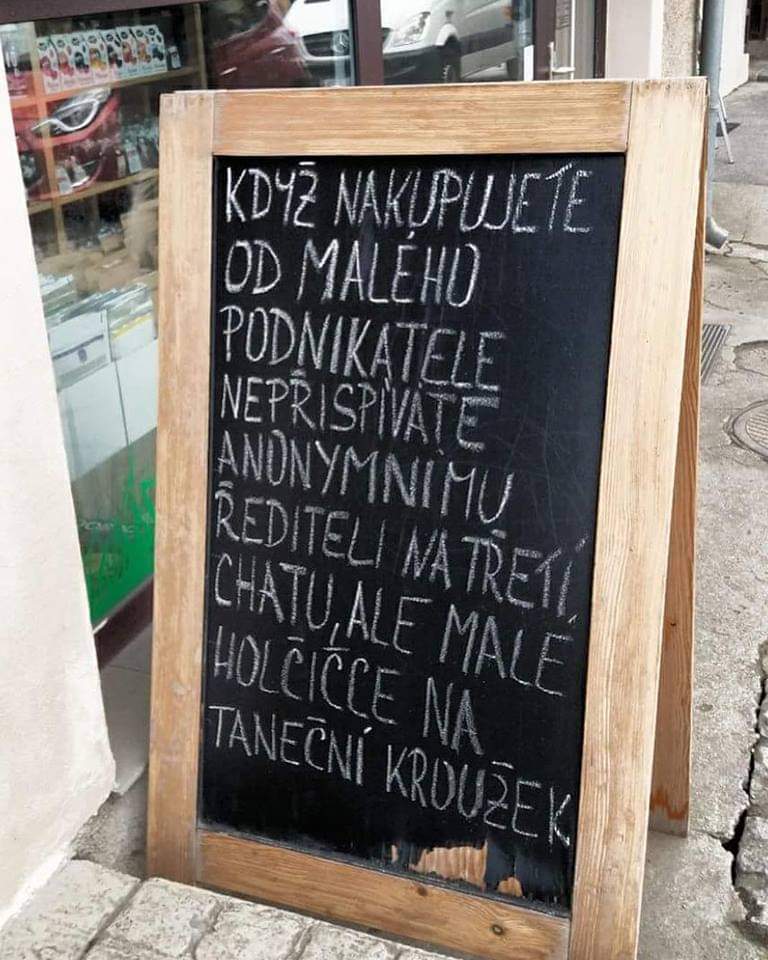 KDYŽ NAKUPUJETE
OD MALÉHO
PODNIKATELE
NEPŘISPÍVÁTE
ANONYMNÍMU
ŘEDITELI NA TŘETÍ
CHATU, ALE MALÉ
HOLČIČCE NA
TANEČNÍ KROUŽEK